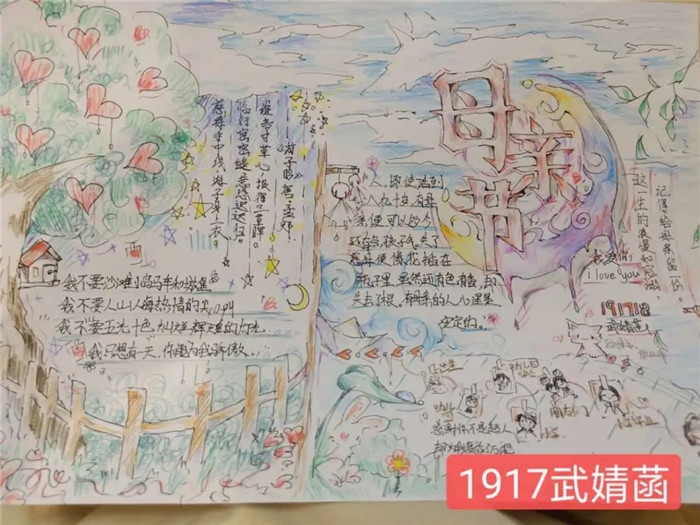 母亲节
《游子吟》唐·孟郊
慈母手中线,游子身上衣。
临行密密缝,意恐迟迟归。
谁言寸草心,报得三春晖。
我不要沙滩小岛马车和城堡
我不要人山人海热情的尖叫
我不要五光十色
我只想有一天,你能为我骄傲...
人,即使活到
八九十岁,有母
亲便可以多少
还有点孩子气。失了
慈母便像花插在
瓶子里,虽然还有色有香,却
失去了根。有母亲的人,心里是
安定的。
记得给母亲留一份
这一生的浪漫和
我爱你
i love you
1917
武婧菡
幼儿园
感谢你不是超人
1917武婧菡